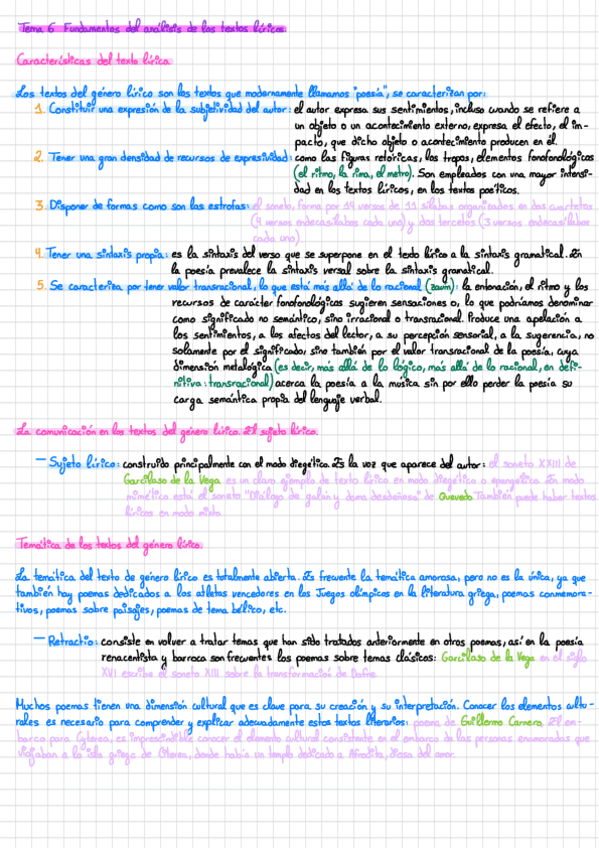 Tema 6 Fundamentos del análisis de los textos líricos.
Características del texto lírico
Los textos del género lírico son los textos que modernamente llamamos "poesía", se caracterizan por:
1. Constituir una expresión de la subjetividad del autor: el autor expresa sus sentimientos, incluso cuando se refiere a
un objeto o un acontecimiento externo, expresa el efecto, el im-
pacto, que dicho objeto o acontecimiento producen en él.
2. Tener una gran densidad de recursos de expresividad: como las figuras retóricas, los tropos, elementos fonofonológicos
(el ritmo, la rima, el metro). Son empleados con una mayor intensi-
dad en los textos líricos, en los textos poéticos.
3. Disponer de formas como son las estrofas: el soneto, forma por 14 versos de 11 sílabas organizados en dos cuartetos
(4 versos endecasílabos cada uno) y dos tercetos (3 versos endecasílabos
cada uno)
4. Tener una sintaxis propia: es la sintaxis del verso que se superpone en el texto lírico a la sintaxis gramatical. En
la poesía prevalece la sintaxis versal sobre la sintaxis gramatical.
5. Se caracteriza por tener valor transracional, lo que está más allá de lo racional (zaum): la entonación, el ritmo y los
recursos de carácter fonofonológicos sugieren sensaciones o, lo que podríamos denominar
como significado no semántico, sino irracional o transracional. Produce una apelación a
los sentimientos, a los afectos del lector, a su percepción sensorial, a la sugerencia, no
solamente por el significado, sino también por el valor transracional de la poesía, cuya
dimensión metalógica (es decir, más allá de lo lógico, más allá de lo racional, en defi-
nitiva: transracional) acerca la poesía a la musica sin por ello perder la poesía su
carga semántica propia del lenguaje verbal.
La comunicación en los textos del género lírico. El sujeto lírico.
— Sujeto lírico: construido principalmente con el modo diegético. Es la voz que aparece del autor: el soneto XXIII de
Garcilaso de la Vega es un claro ejemplo de texto lírico en modo diegético o apangético. En modo
mimético está el soneto "Diálogo de galán y dama desdeñosa" de Quevedo. También puede haber textos
líricos en modo mixto
Temática de los textos del género lírico.
La temática del texto de género lírico es totalmente abierta. Es frecuente la temática amorosa, pero no es la única, ya que
también hay poemas dedicados a los atletas vencedores en los Juegos olímpicos en la literatura griega, poemas conmemora-
tivos, poemas sobre paisajes, poemas de tema bélico, etc.
— Retractio: consiste en volver a tratar temas que han sido tratados anteriormente en otros poemas, así en la poesía
renacentista y barroca son frecuentes los poemas sobre temas clásicos: Garcilaso de la Vega en el siglo
XVI escribe el soneto XIII sobre la transformación de Dafne.
Muchos poemas tienen una dimensión cultural que es clave para su creación y su interpretación. Conocer los elementos cultu-
rales es necesario para comprender y explicar adecuadamente estos textos literarios: poema de Guillermo Carnero El em-
barco para Cyterea, es imprescindible conocer el elemento cultural consistente en el embarco de las personas enamoradas que
viajaban a la isla griega de Citerea, donde había un templo dedicado a Afrodita, diosa del amor.